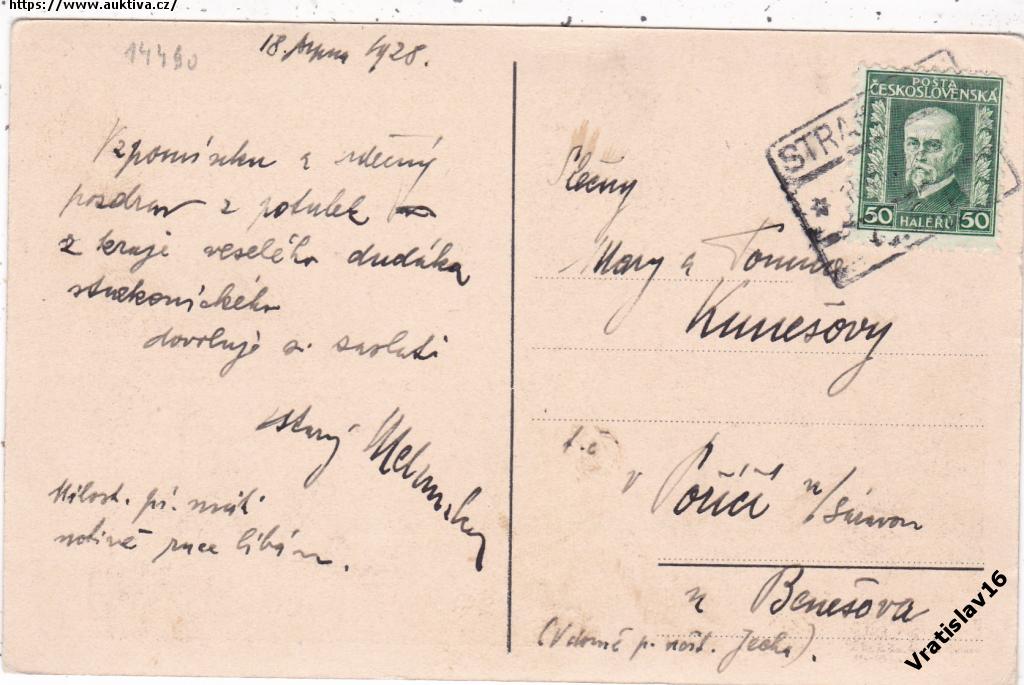 https://www.auktiva.cz/
14490
18. srpna 1928.
Vzpomínku a srdečný
pozdrav z potulek
z kraje veselého dudáka
strakonického
dovoluje si zaslati
starý
Milost. pí. mát
uctivě ruce líbám.
POŠTA
ČESKOSLOVENSKÁ
50 HALÉŘŮ 50
STRA
Slečny
Mary a
Kunešovy
t.č.
v Poříčí n/Sázavou
u Benešova
(V domě p. Jecha).
Vratislav16